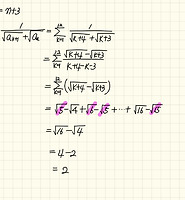 = n+3
1/(√a_{k+1}+√a_k) = Σ_{k=1}^{12} 1/(√k+4+√k+3)
= Σ_{k=1}^{12} (√k+4-√k+3)/(k+4-k-3)
= Σ_{k=1}^{12} (√k+4-√k+3)
= √5-√4+√6-√5+⋯+√16-√15
= √16-√4
= 4-2
= 2